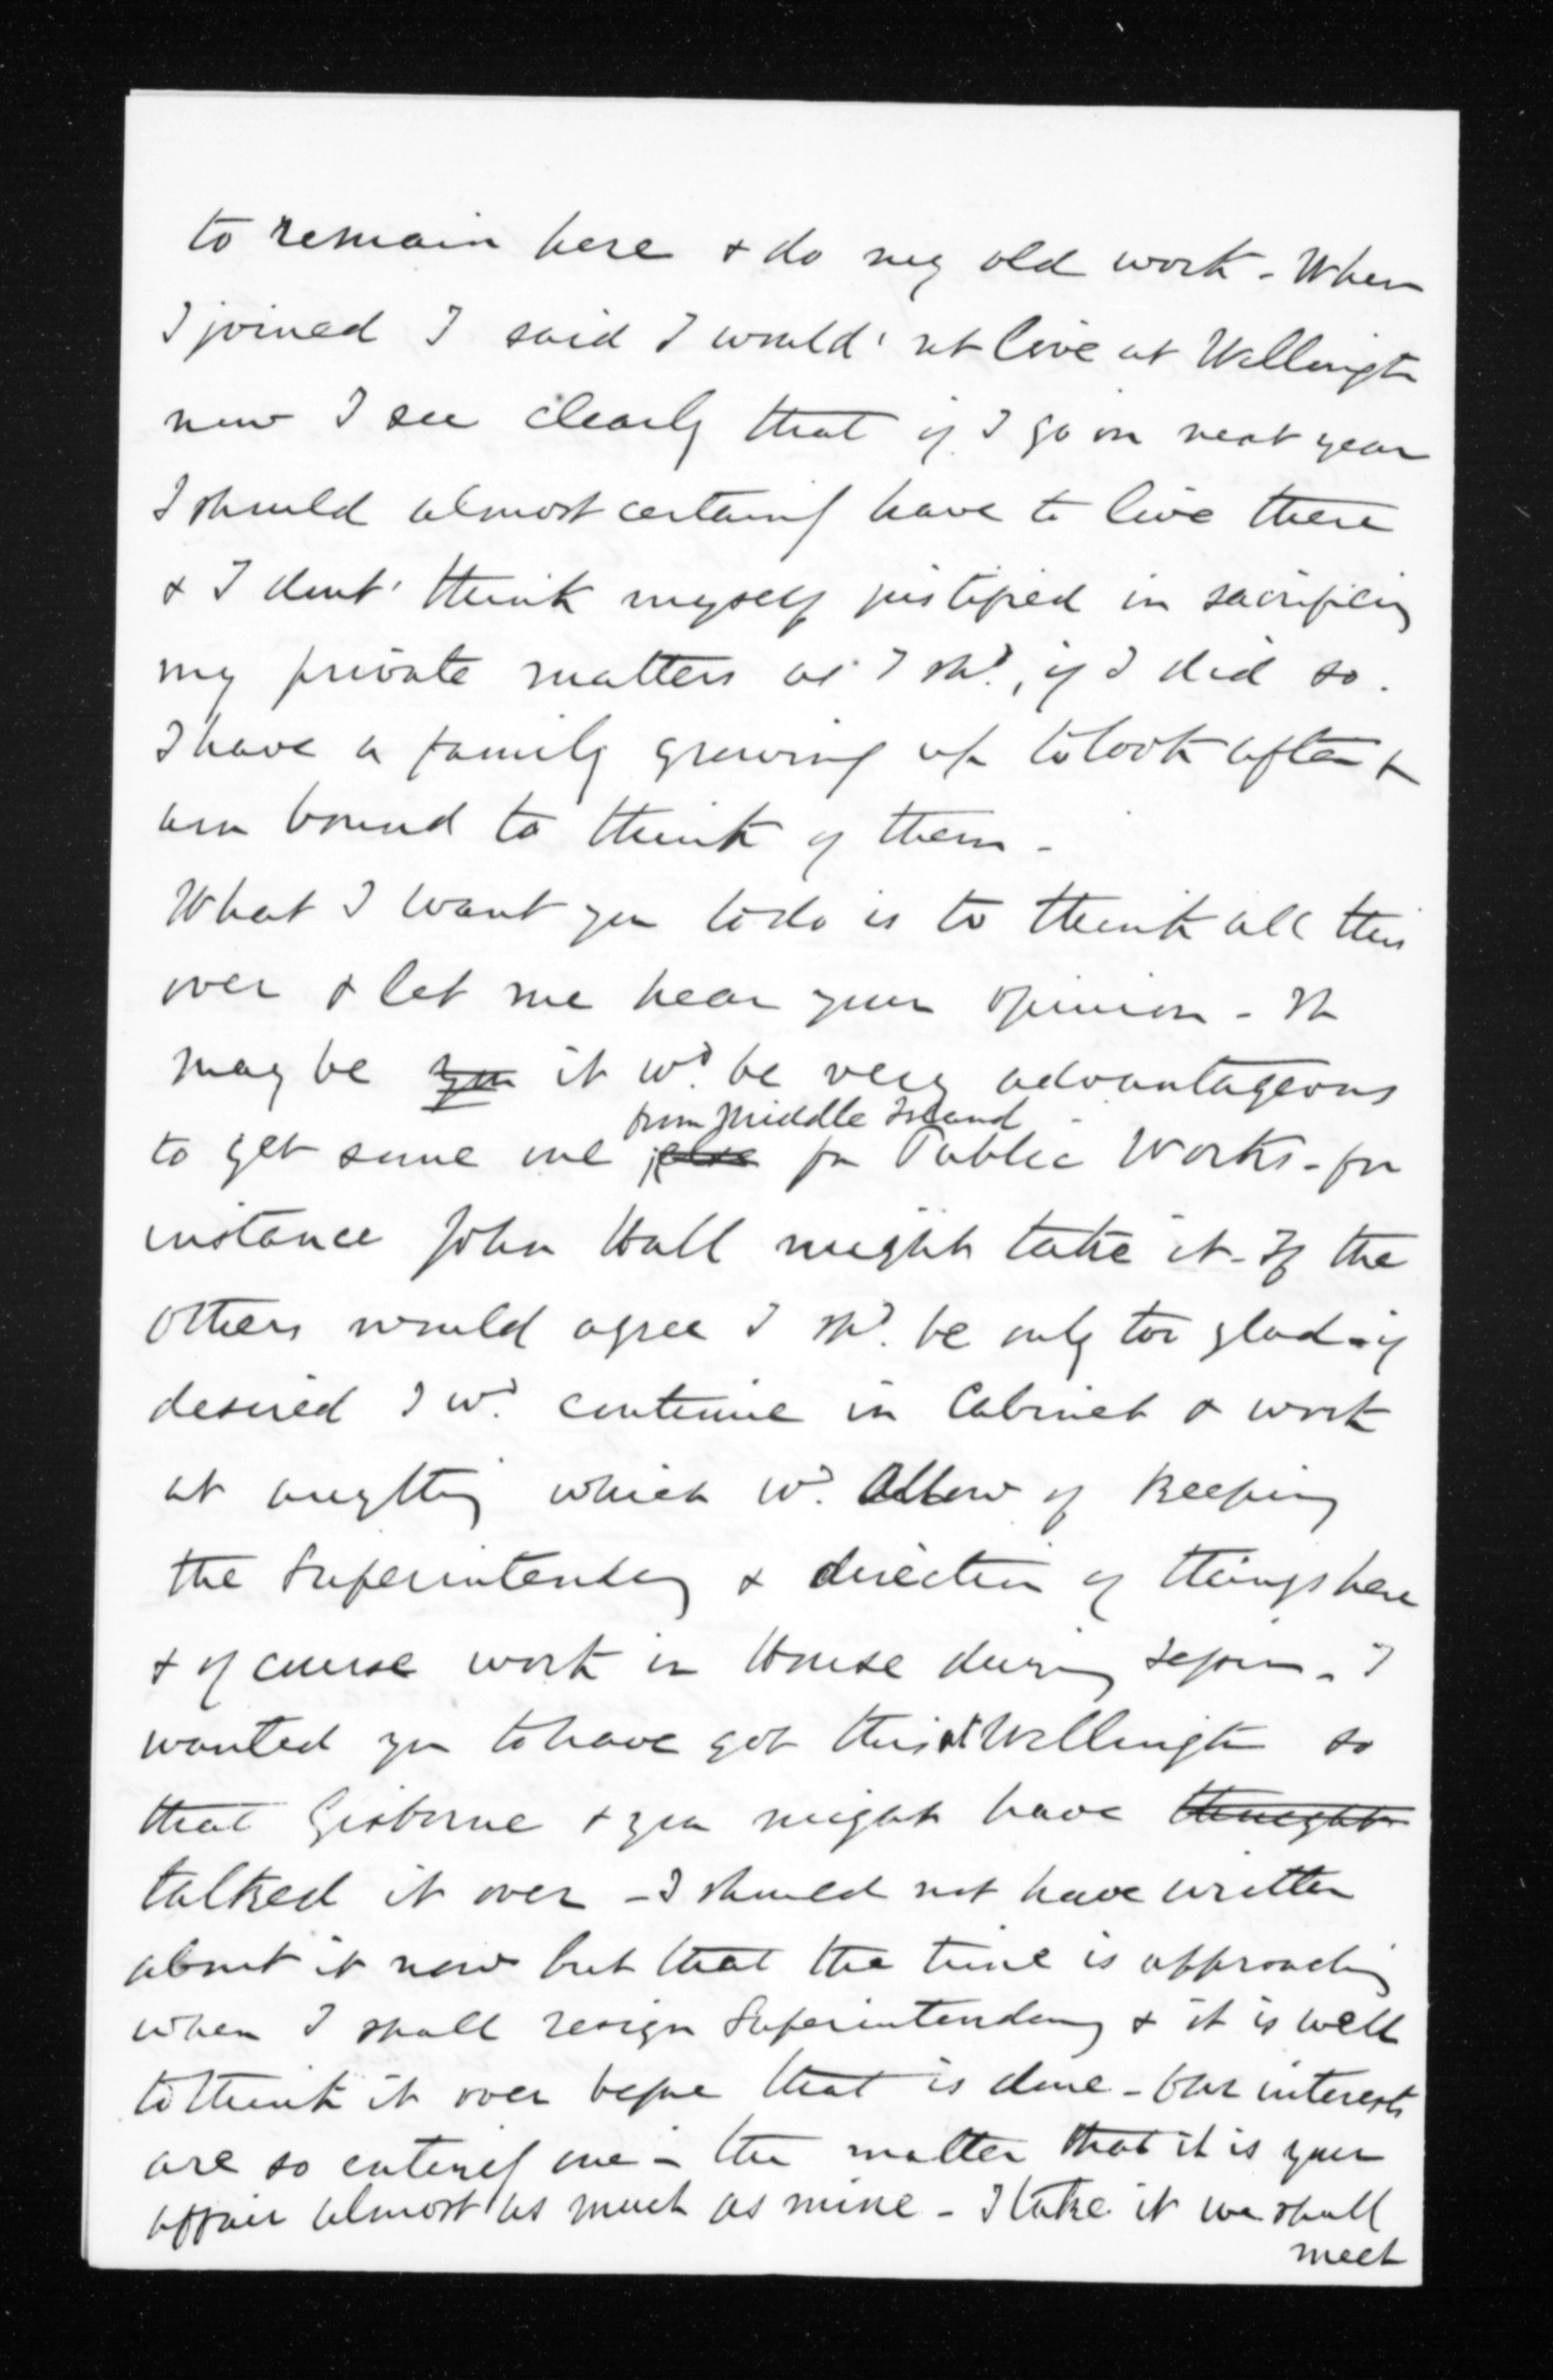 to remain here & do my old work - When
I joined I said I would' nt live at Wellingtn
now I see clearly that if I go on next year
I should almost certainly have to live there
& I dont' think myself justified in sacrificing
my private matters as I shd., if I did so.
I have a family growing up to look after &
am bound to think of them -
What I want you to do is to think all this
over & let me hear your opinion - It
may be you it wd. be very advantageous
from Middle Island
to get some one else for Public Works - for
instance John Hall might take it - If the
others would agree I shd. be only too glad - if
desired I wd. continue in Cabinet & work
at anything which wd. allow of keeping
the Superintendency & direction of things here
& of course work in House during session - I
wanted you to have got this at Wellingtn so
that Gisborne & you might have thought
talked it over - I should not have written
about it now but that the time is approaching
when I shall resign Superintendency & it is well
to think it over before that is done - Our interests
are so entirely one in the matter that it is your
affair almost as much as mine - I take it we shall
meet